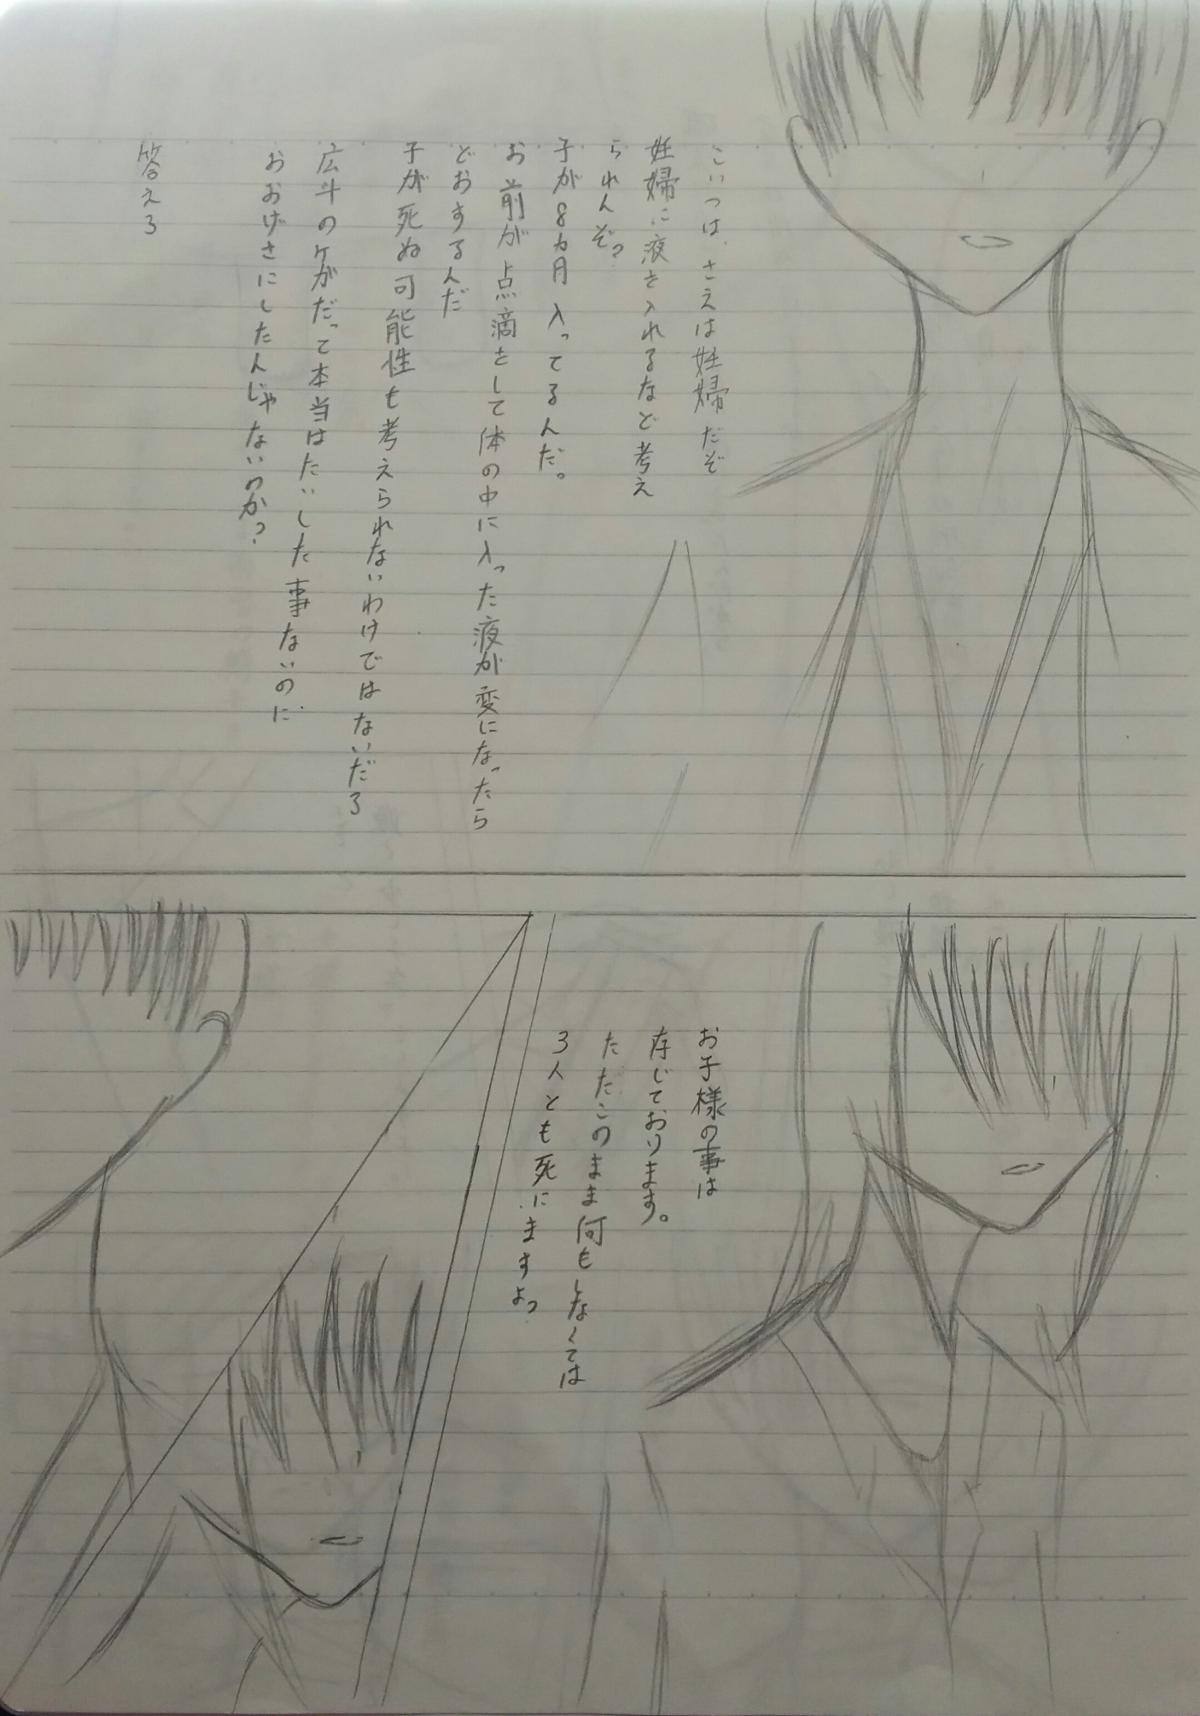 こいつは、さえは妊婦だぞ
妊婦に液を入れるなど考え
られんぞ?
子が8ヵ月入ってるんだ。
お前が点滴をして体の中に入った液が変になったら
どおするんだ
子が死ぬ可能性も考えられないわけではないだろ
広斗のケガだって本当はたいした事ないのに、
おおげさにしたんじゃないのか?
答えろ
お子様の事は
存じております。
ただこのまま何もしなくては
3人とも死にますよっ